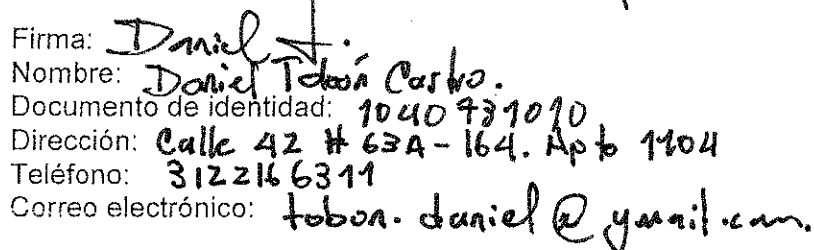 Firma: Daniel T.
Nombre: Daniel Tobón Castro.
Documento de identidad: 1040731010
Dirección: Calle 42 # 63A - 164. Apto 1104
Teléfono: 3122166311
Correo electrónico: tobon.daniel@gmail.com.